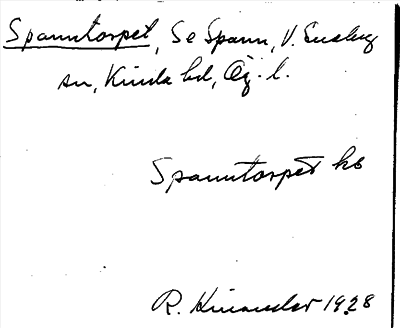 Spanntorpet, Se Spann, V. Eneby
sn, Kinda hd, Ög. l.
Spanntorpet hs
R. Kinander 1928